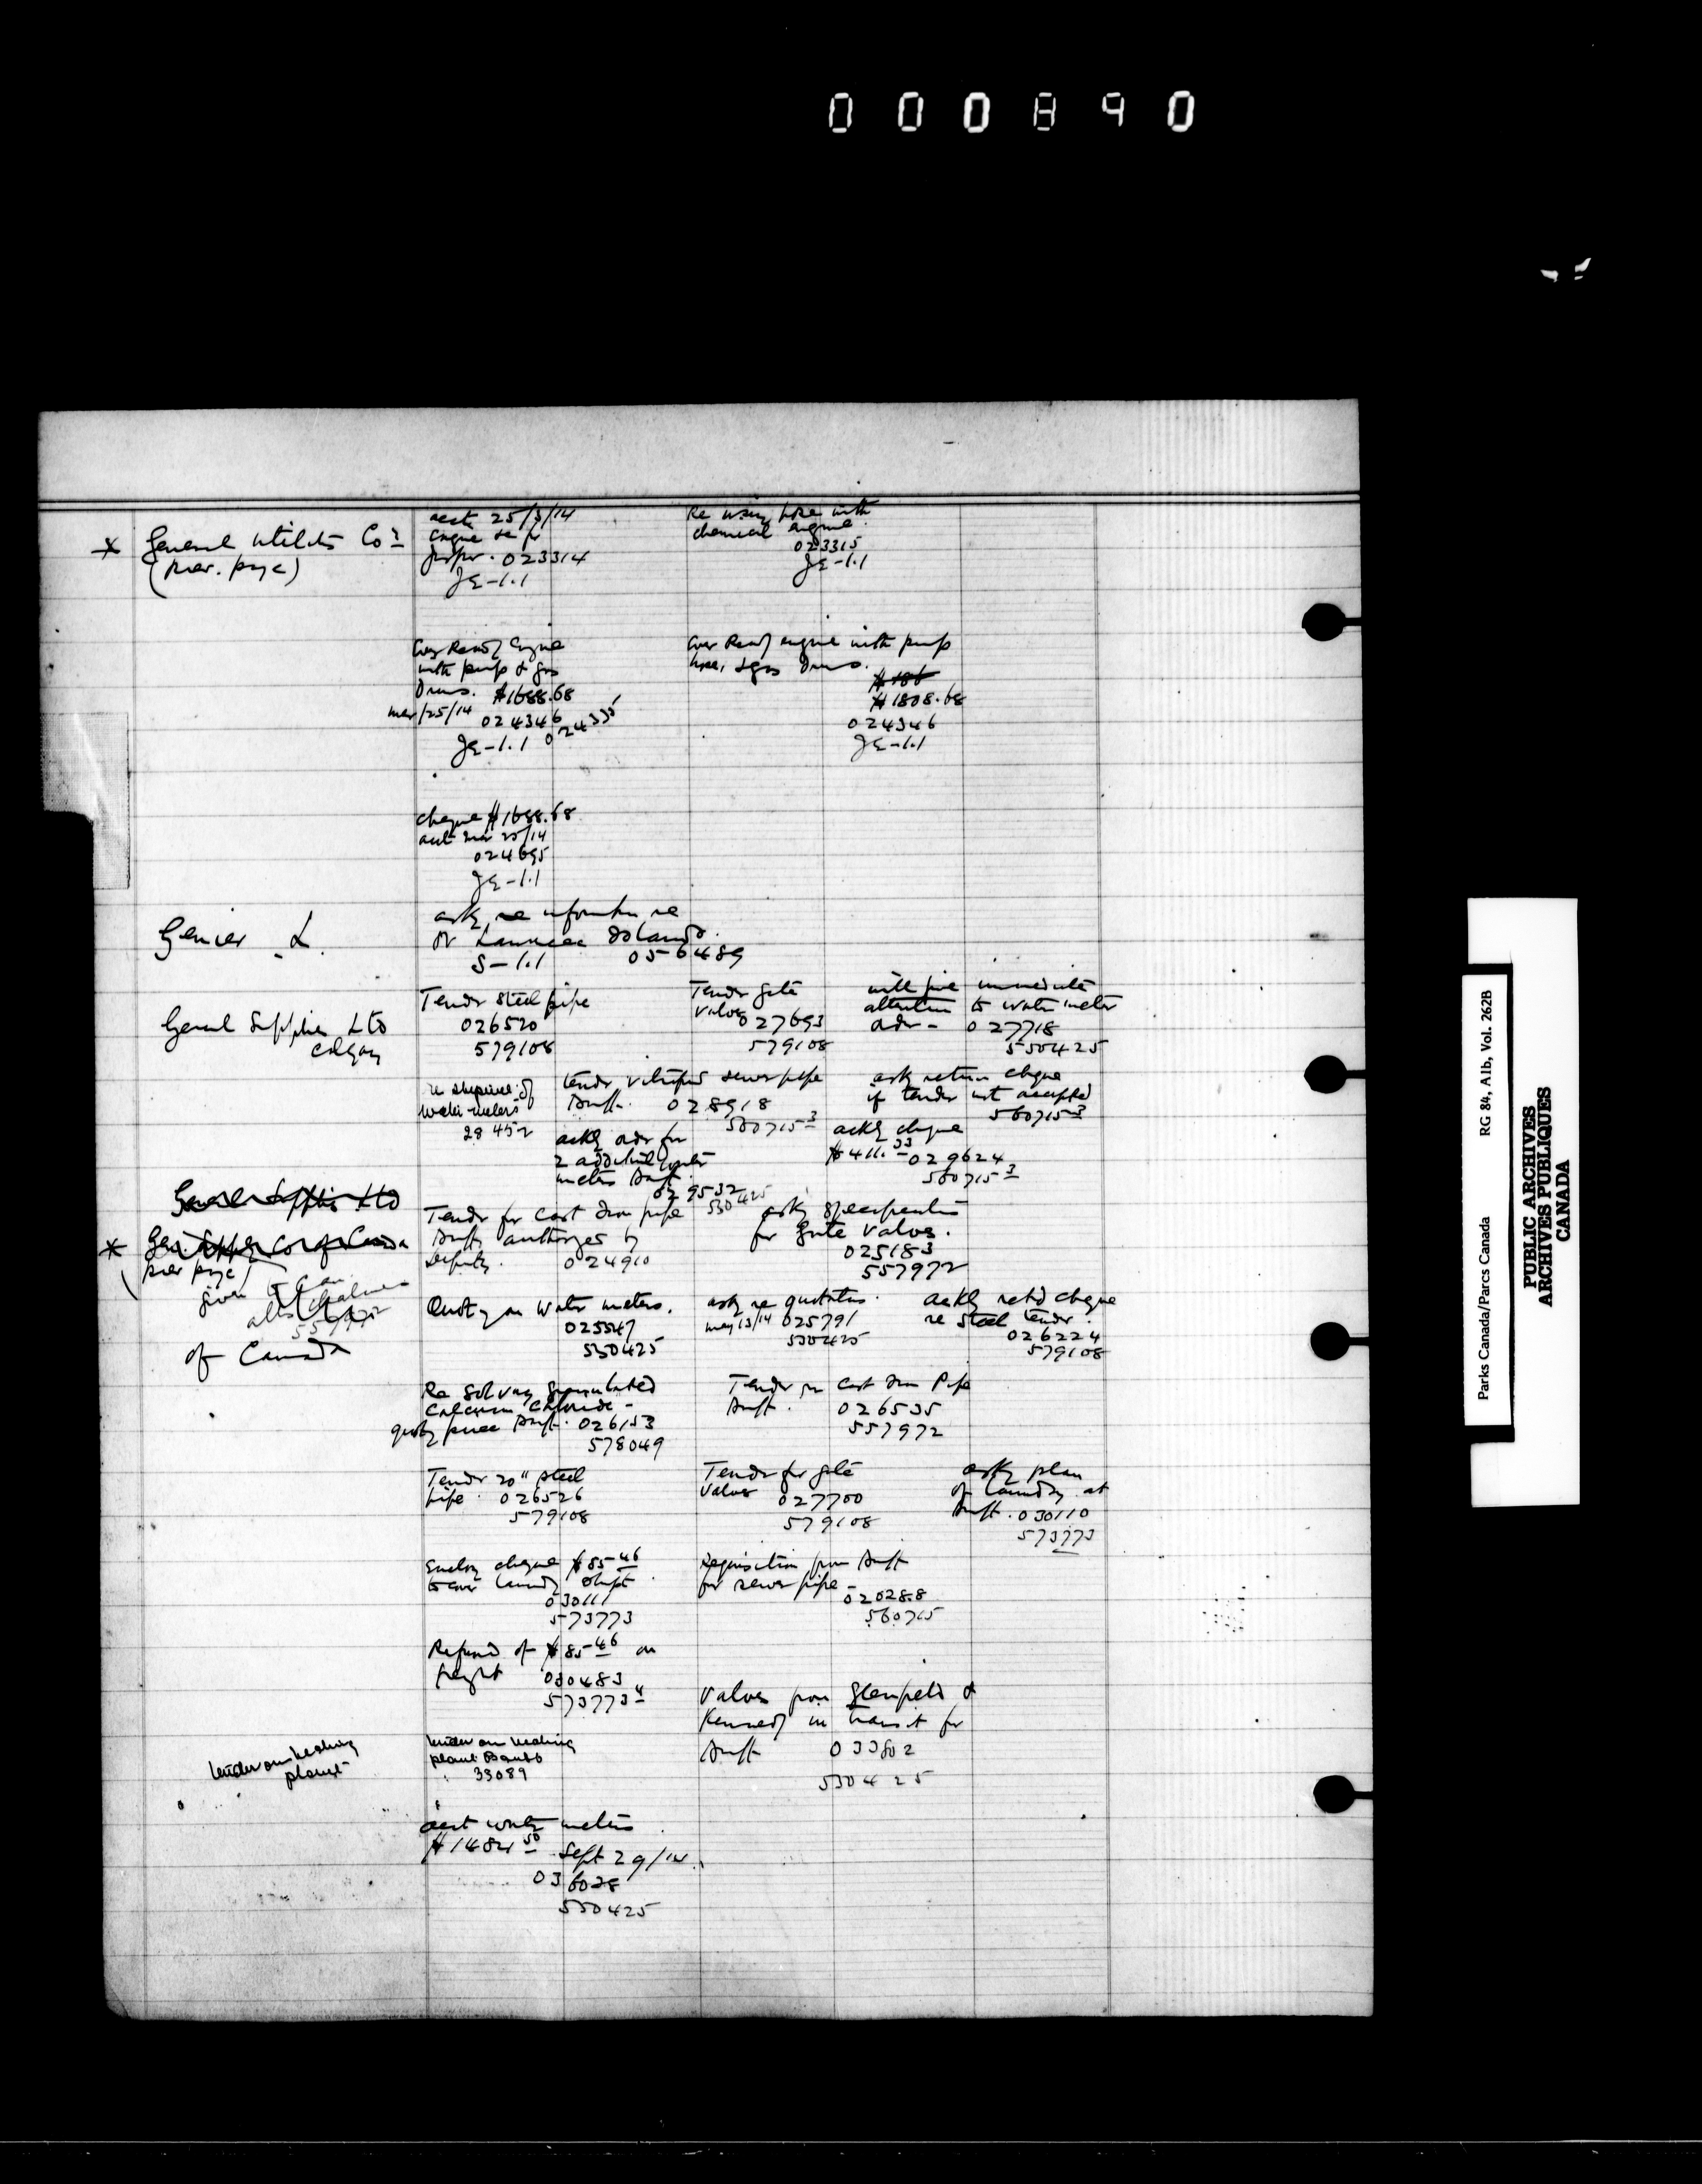 000890
* General Utilities Co?
(prev. page)
acct 25/3/14
Engine
023314
JE-1.1
Re using hose with
chemical engine
023315
JE-1.1
Engine
with pump & gas
Drums. $1688.68
mar/25/14 024346
024335
JE-1.1
engine with pump
hose, & gas Drums.
$1808.68
024346
JE-1.1
cheque $1688.68
acct mar 25/14
024695
JE-1.1
Genier L.
askg re information re
St Lawrence Islands.
S-1.1 056489
General Supplies Ltd
Calgary
Tender steel pipe
026520
579108
Tender gate
valves 027693
579108
will give immediate
attention to water meter
adv- 027718
550425
re shipment of
water meters
28452
tender vitrified sewer pipe
Banff. 028918
560715 3
ask return cheque
if tender not accepted
560715 3
ackg order for
2 additional water
meters Banff
029532
530425
ackg cheque
$411.33 029624
560715 3
General Supplies Ltd
* Gen. Supply Co of Canada
(prev page)
given to
557972
of Canada
Tender for Cast Iron pipe
Banff authorizes by
deputy. 024910
askg specification
for Gate Valves.
025183
557972
Quotg on Water meters.
025547
530425
askg re quotation.
may 13/14 025791
530425
ackg retd cheque
re steel tender.
026224
579108
Re Solvay Granulated
Calcium Chloride -
quotg price Banff. 026153
578049
Tender on Cast Iron Pipe
Banff. 026535
557972
Tender 20" steel
pipe. 026526
579108
Tender for gate
Valves 027700
579108
askg plan
of laundry at
Banff. 030110
573773
Enclosg cheque $85.46
to cover laundry
030111
573773
Requisition from Banff
for sewer pipe -
020288
560715
Refund of $85.46 on
freight 030483
573773 4
Valves from Glenfield &
Kennedy in transit for
Banff 033802
530425
tender on heating
plant
tender on heating
plant Banff
33089
acct water meters
$1484.50 Sept 29/14.
036028
530425
RG 84, A1b, Vol. 262B
Parks Canada/Parcs Canada
PUBLIC ARCHIVES
ARCHIVES PUBLIQUES
CANADA